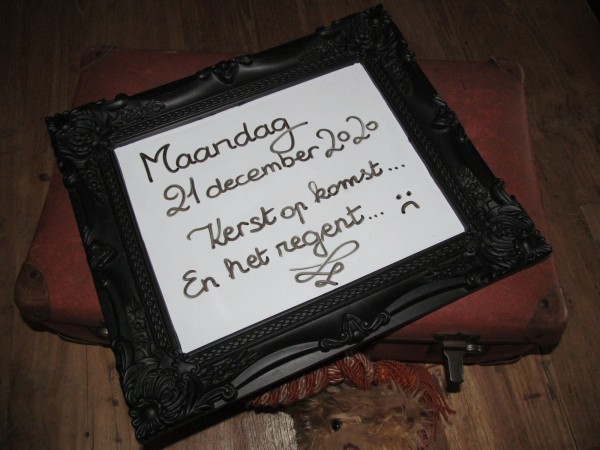 Maandag
21 december 2020
Kerst op komst...
En het regent... :(